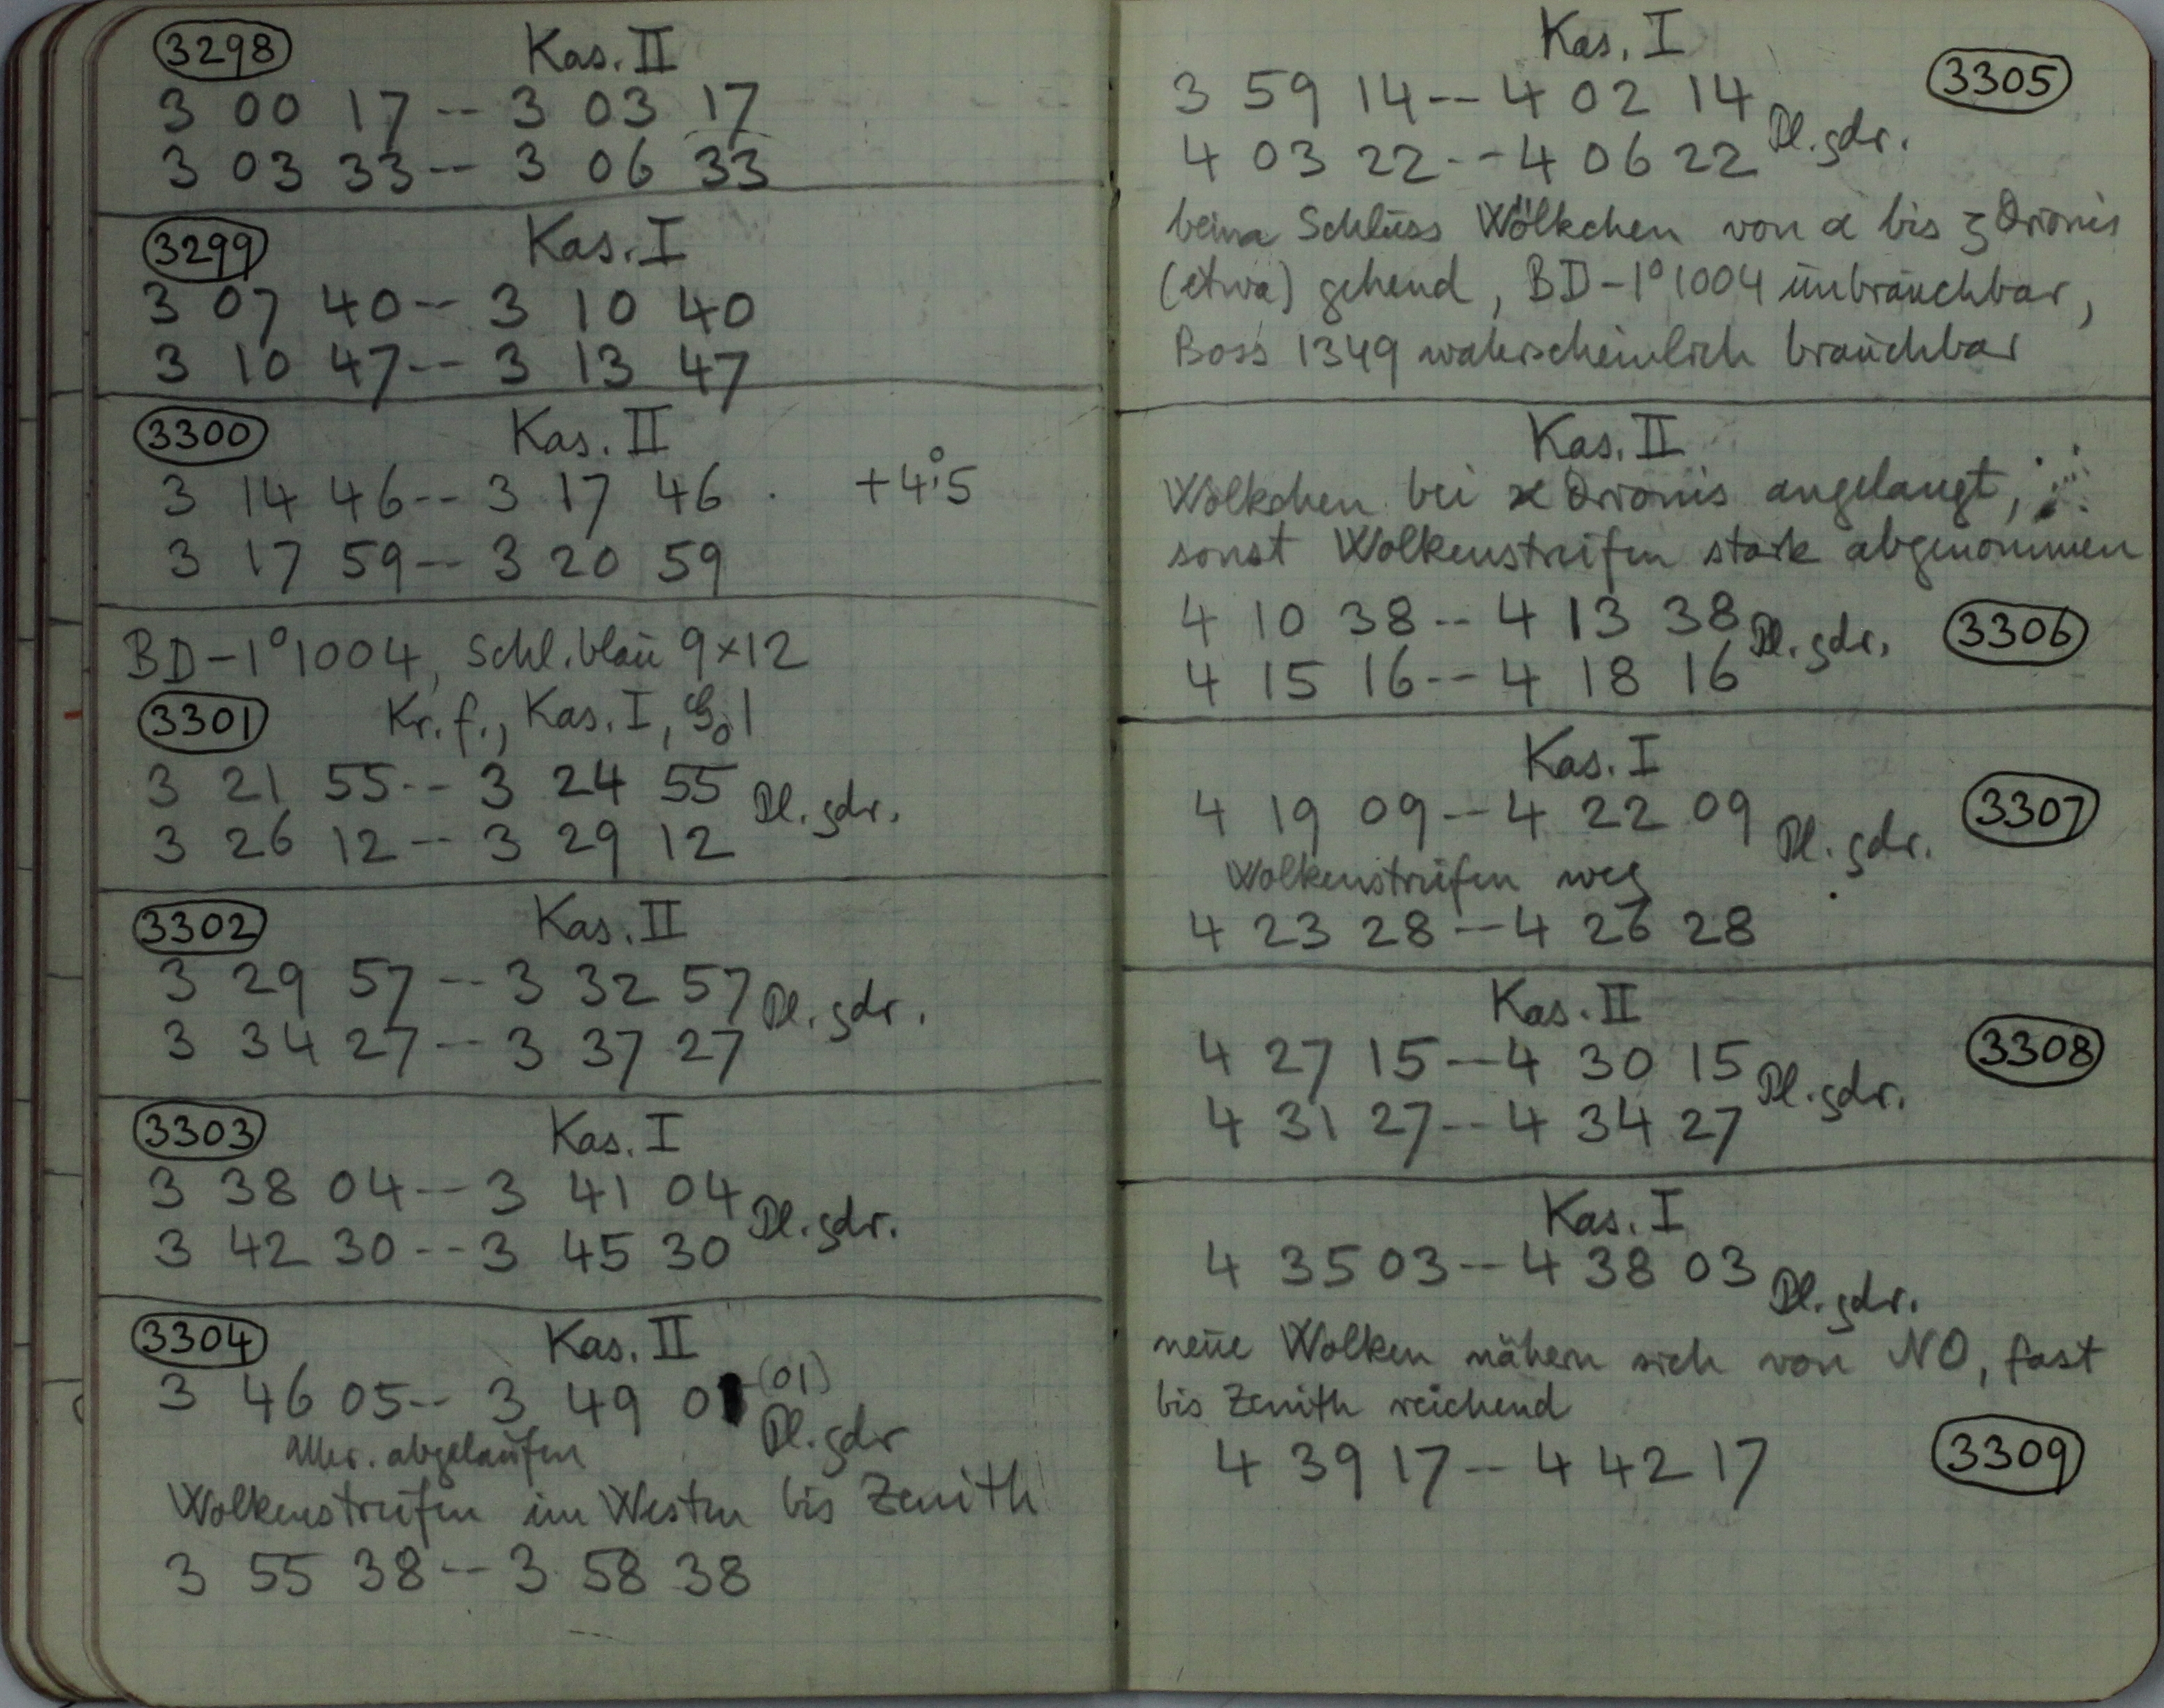 3298 Kas. II
3 00 17 -- 3 03 17
3 03 33 -- 3 06 33
3299 Kas. I
3 07 40 -- 3 10 40
3 10 47 -- 3 13 47
3300 Kas. II
3 14 46 -- 3 17 46 . +4°.5
3 17 59 -- 3 20 59
BD-1°1004, Schl. blau 9×12
3301 Kr. f., Kas. I,
3 21 55 -- 3 24 55 Pl. gdr.
3 26 12 -- 3 29 12
3302 Kas. II
3 29 57 -- 3 32 57 Pl. gdr.
3 34 27 -- 3 37 27
3303 Kas. I
3 38 04 -- 3 41 04 Pl. gdr.
3 42 30 -- 3 45 30
3304 Kas. II
3 46 05 -- 3 49 01 (01)
abgelaufen Pl. gdr
Wolkenstreifen im Westen bis Zenith
3 55 38 -- 3 58 38
Kas. I 3305
3 59 14 -- 4 02 14 Pl. gdr.
4 03 22 -- 4 06 22
beim Schluss Wölkchen von α bis ζ Orionis
(etwa) gehend, BD-1°1004 unbrauchbar,
Boss 1349 wahrscheinlich brauchbar
Kas. II
Wölkchen bei ϰ Orionis angelangt,
sonst Wolkenstreifen stark abgenommen
4 10 38 -- 4 13 38 Pl. gdr. 3306
4 15 16 -- 4 18 16
Kas. I
4 19 09 -- 4 22 09 Pl. gdr. 3307
Wolkenstreifen weg
4 23 28 -- 4 26 28
Kas. II
4 27 15 -- 4 30 15 Pl. gdr. 3308
4 31 27 -- 4 34 27
Kas. I
4 35 03 -- 4 38 03 Pl. gdr.
neue Wolken nähern sich von NO, fast
bis Zenith reichend
4 39 17 -- 4 42 17 3309